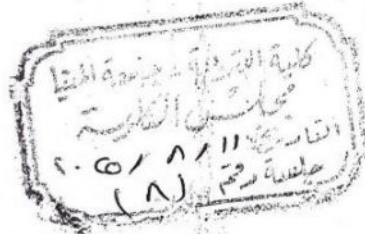 كلية التربية - جامعة المنيا
مجلس الكلية
التاريخ ١١/ ٨/
جلسة رقم (٨)